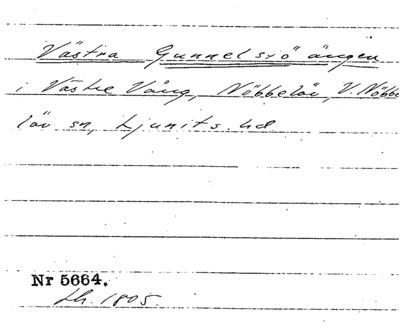 Västra Gunnelsjö ängen
i Västre Vång, Nöbbelöv, V. Nöbbe
löv sn, Ljunits hd
Nr 5664.
Lh. 1805.